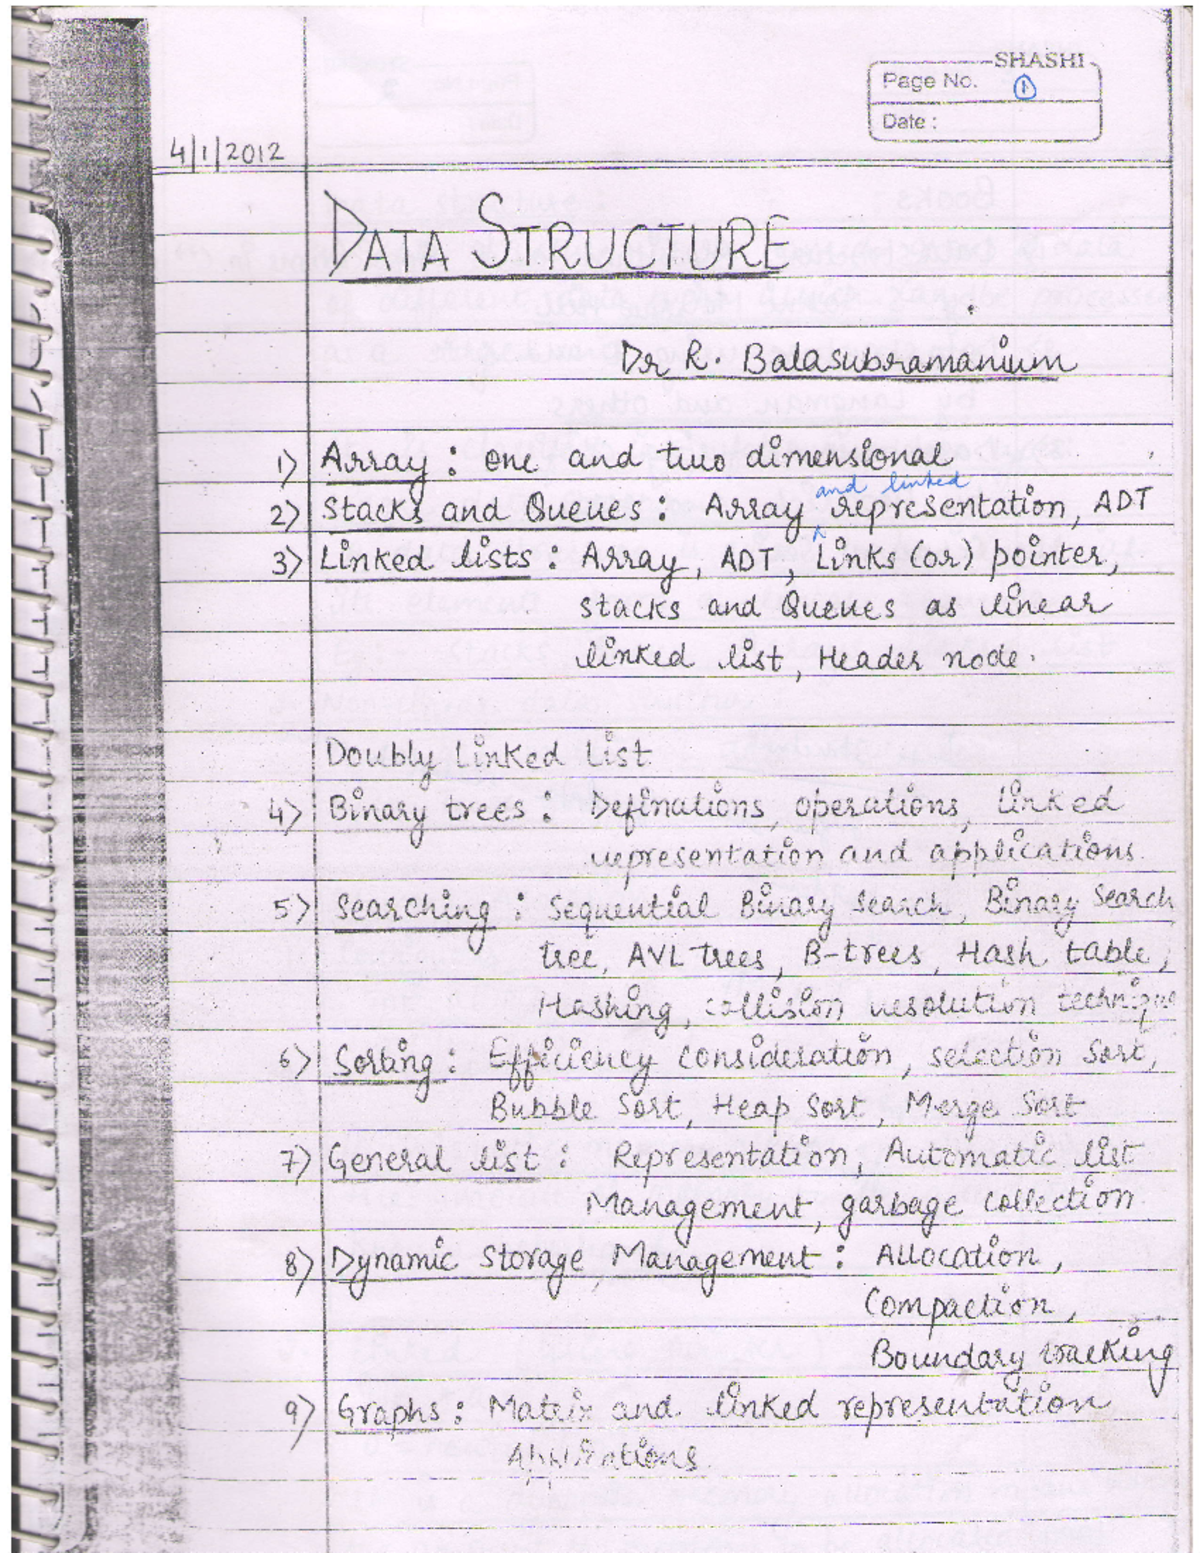 SHASHI
Page No. 1
Date :
4/1/2012
DATA STRUCTURE
Dr R. Balasubramanium
1) Array : one and two dimensional
and linked
2) Stacks and Queues : Array representation, ADT
3) Linked lists : Array, ADT, Links (or) pointer,
stacks and Queues as linear
linked list, Header node.
Doubly Linked List
4) Binary trees : Definations, operations, linked
representation and applications.
5) Searching : Sequential Binary Search, Binary Search
tree, AVL trees, B-trees, Hash table,
Hashing, collision resolution technique
6) Sorting : Efficiency consideration, selection Sort,
Bubble Sort, Heap Sort, Merge Sort
7) General list : Representation, Automatic list
Management, garbage collection.
8) Dynamic Storage Management : Allocation,
Compaction,
Boundary tracking
9) Graphs : Matrix and linked representation
Applications.